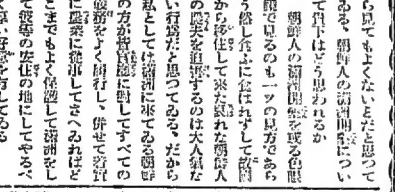 ら見てもよくないとだと思つて
ゐる、朝鮮人の滿洲開墾につい
て貴下はどう思われるか
朝鮮人の滿洲開墾を或る色眼
鏡で見るのも一ツの見方であら
う然し食ふに食はれずして故鄕
から移住して來た哀れな朝鮮人
の農夫を迫害するのは大人氣な
い行爲だと思つてゐる、だから
私としては滿洲に來てゐる朝鮮
の方が に對してすべての
義務をよく履行し、併せて着實
に農業に從事してさへゐればど
こまでもよく保護して滿洲をし
て彼等の安住の地にしてやるべ
く 好意を有してゐる